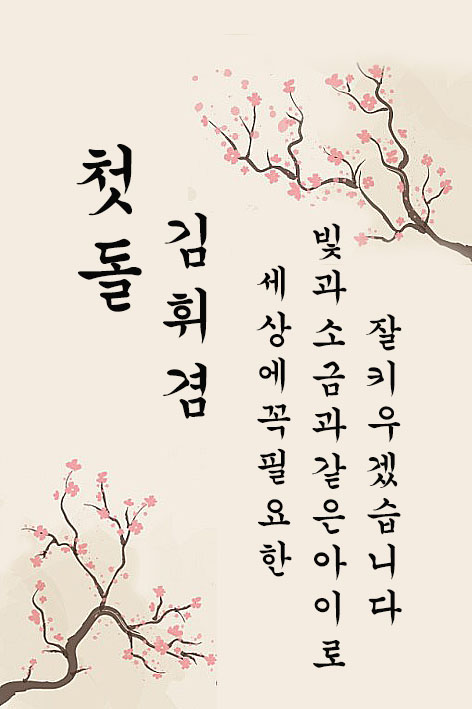 첫돌
김휘겸
세상에꼭필요한
빛과소금과같은아이로
잘키우겠습니다